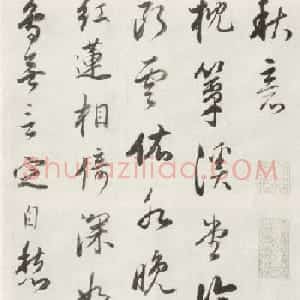 秋意
枕簟溪堂冷
斷雲依水晚
紅蓮相倚渾如
鳥無言定自愁
Shufaziliao.com